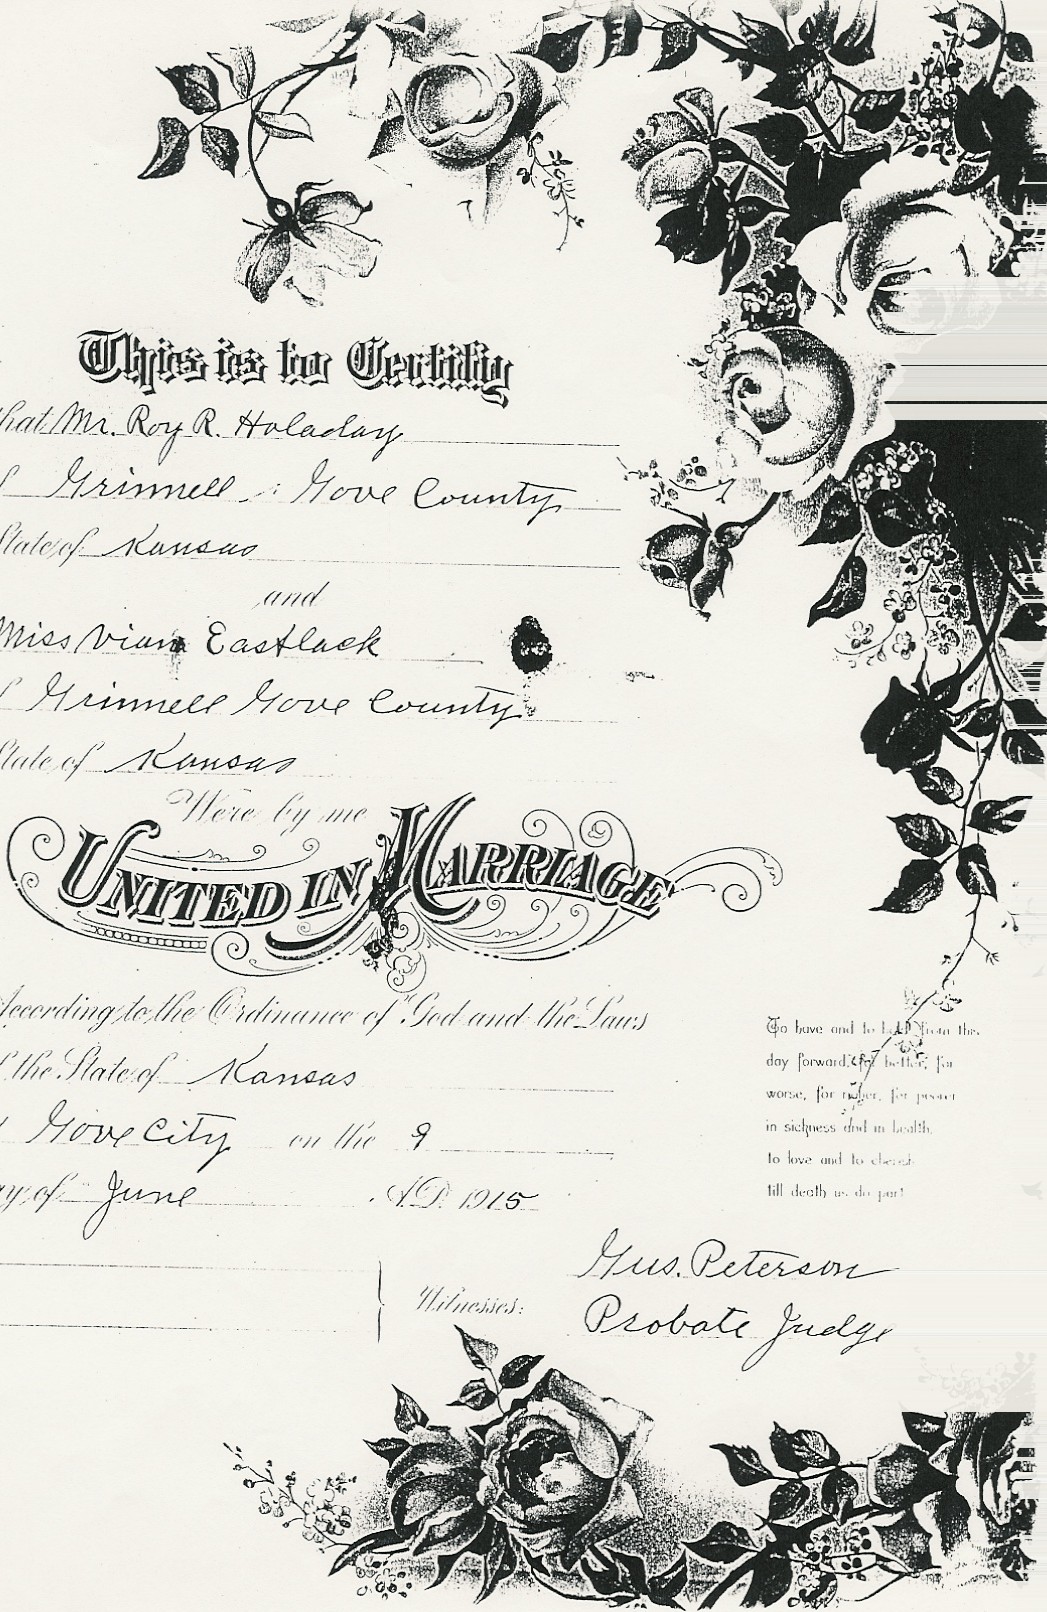 This is to Certify
that Mr. Roy R. Holaday
Grinnell : Gove County
State of Kansas
and
Miss Vian Eastlack
Grinnell Gove County
State of Kansas
Were by me
UNITED IN MARRIAGE
According to the Ordinance of God and the Laws
the State of Kansas
Gove City on the 9
ay of June A.D. 1915
To have and to hold from this
day forward, for better, for
worse, for richer, for poorer
in sickness and in health,
to love and to cherish
till death us do part
Gus. Peterson
Witnesses:
Probate Judge